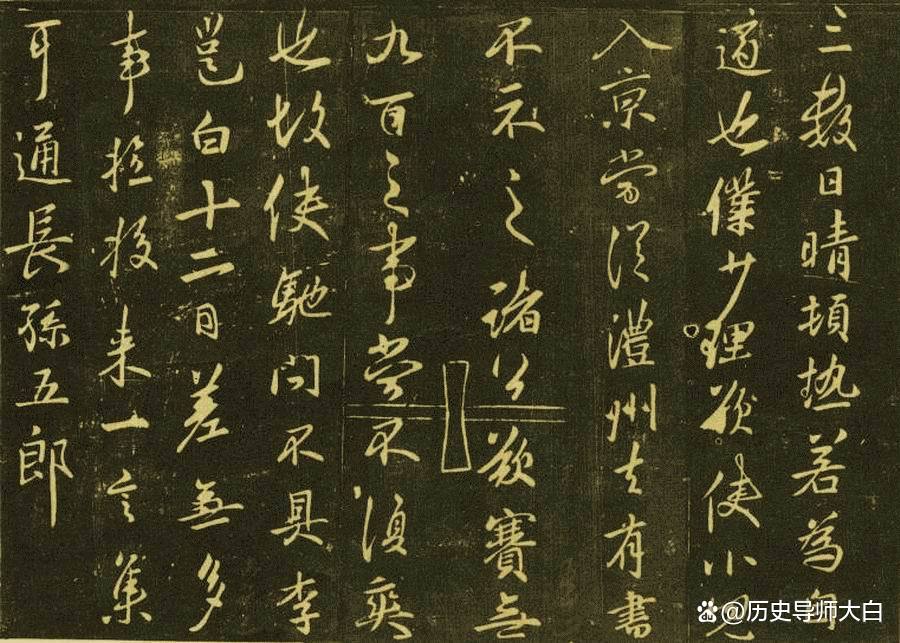 三數日晴頓热若為自
適也僕少理欲使小兒
入京當從澧州去有書
不示之諸公欲賽無
九百之事當不須奕
也故使馳問不具李
邕白十二日差無多
事投来一言集
耳通長孫五郎
@历史导师大白